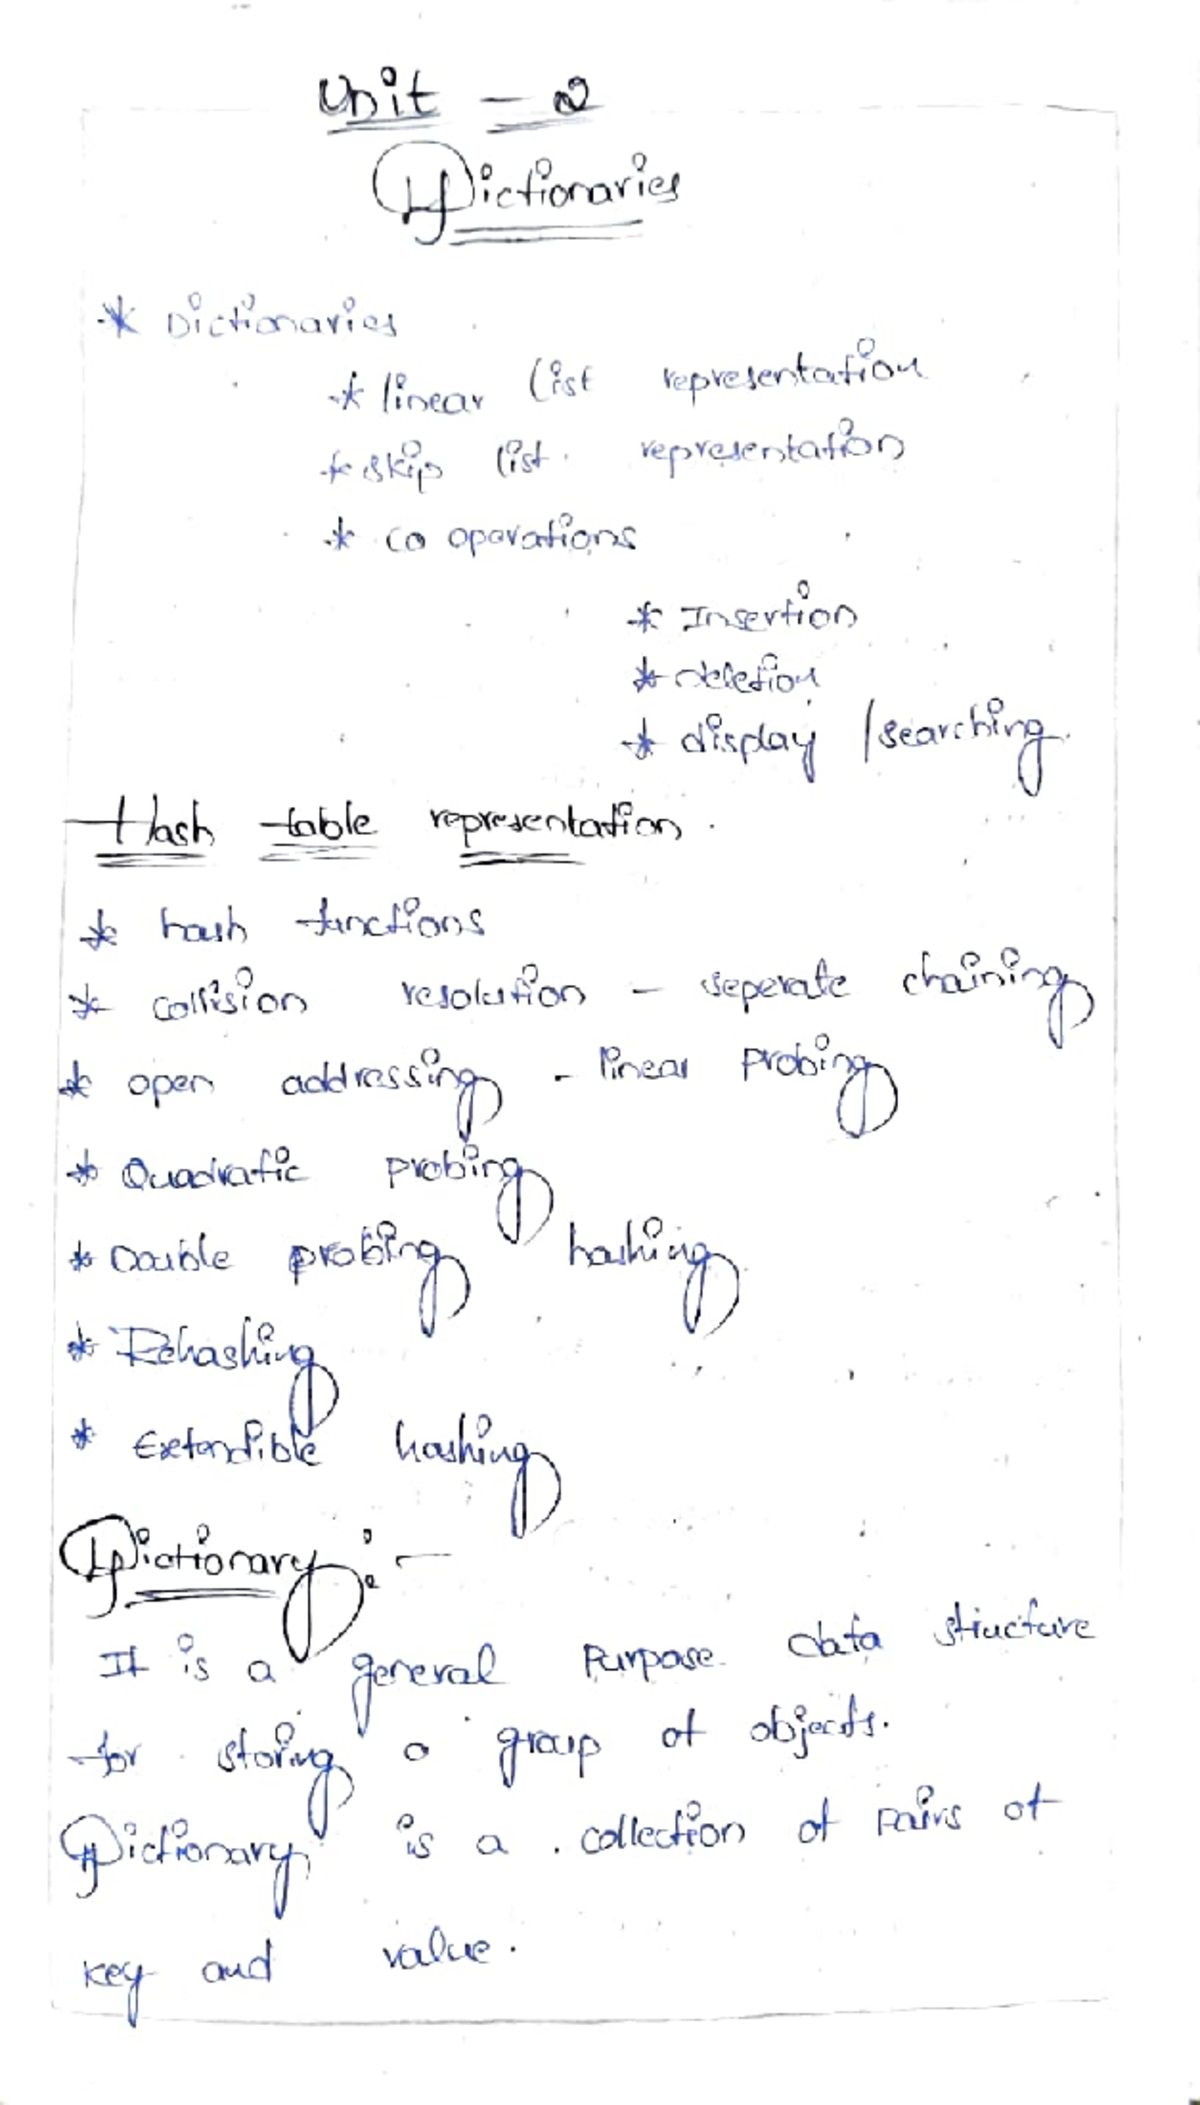 Unit - 2
Dictionaries
* Dictionaries
* linear list representation
* skip list representation
* co operations
* Insertion
* deletion
* display / searching.
Hash table representation.
* hash functions
* collision resolution - seperate chaining
* open addressing - linear probing
* Quadratic probing
* Double probing hashing
* Rehashing
* Extendible hashing
Dictionary :-
It is a general Purpose data structure
for storing a group of objects.
Dictionary is a collection of Pairs of
key and value.